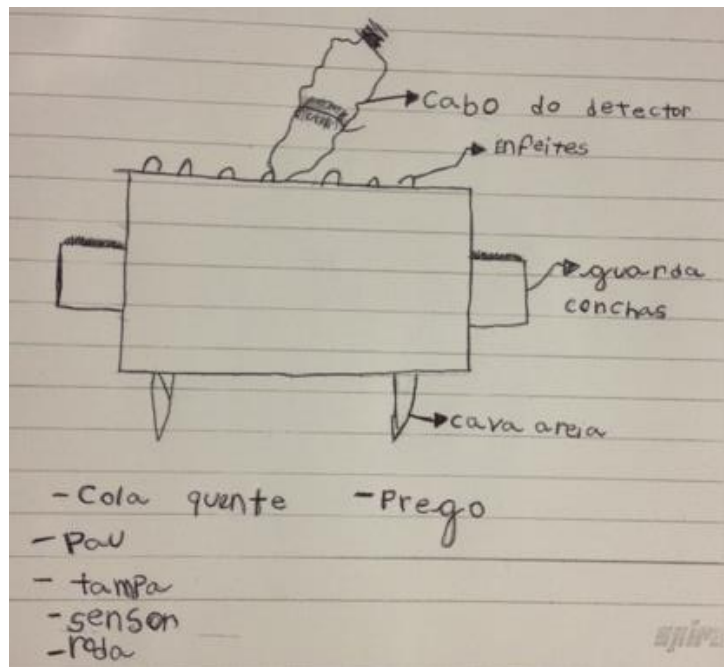 cabo do detector
enfeites
guarda
conchas
cava areia
- Cola quente - Prego
- pau
- tampa
- sensor
- roda